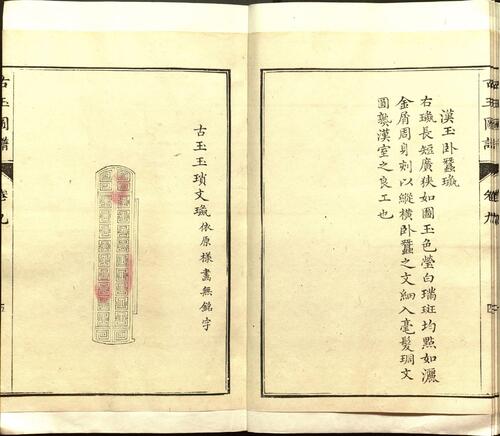 古玉圖譜
漢玉卧蠶璏
右璏長短廣狹如圖玉色瑩白璊斑均㸃如灑
金屑周身刻以縱横卧蠶之文細入毫髮琱文
圓熟漢室之良工也
古玉玉瑣文璏依原樣畫無銘字
古玉圖譜
卷九
五